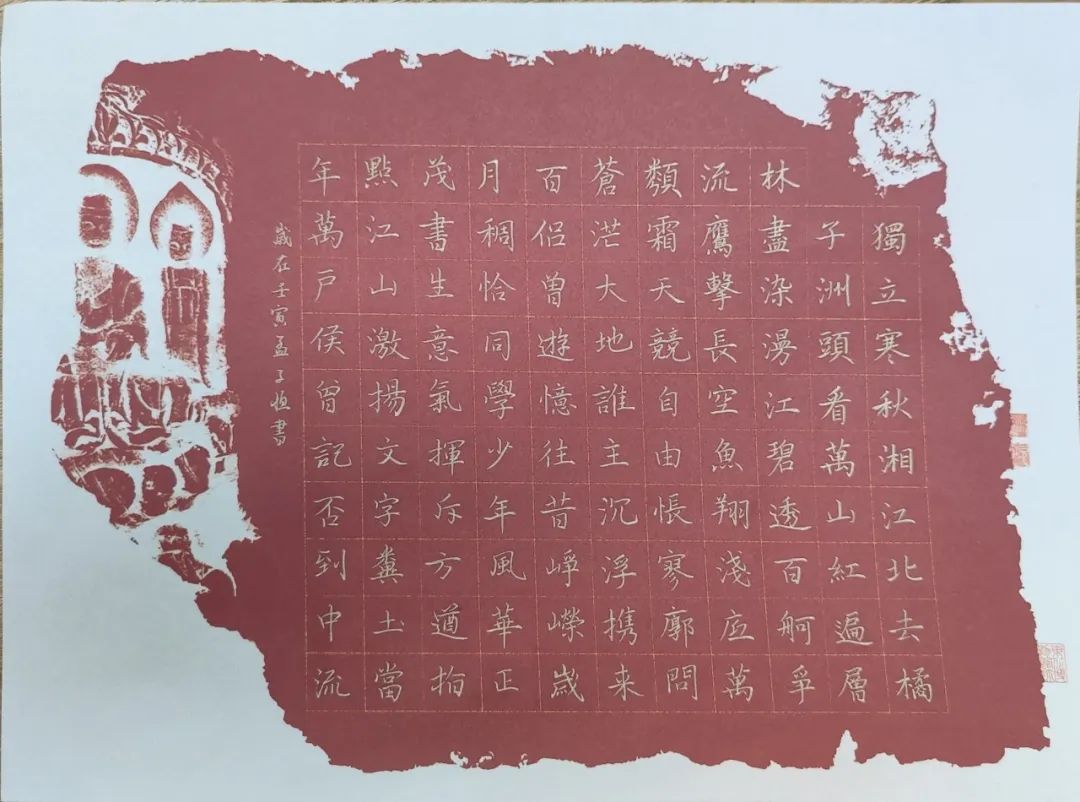 獨立寒秋湘江北去橘
子洲頭看萬山紅遍層
林盡染漫江碧透百舸爭
流鷹擊長空魚翔淺底萬
類霜天競自由悵寥廓問
蒼茫大地誰主沉浮携来
百侣曾遊憶往昔崢嶸歲
月稠恰同學少年風華正
茂書生意氣揮斥方遒指
點江山激揚文字糞土當
年萬戶侯曾記否到中流
歲在壬寅孟子恒書